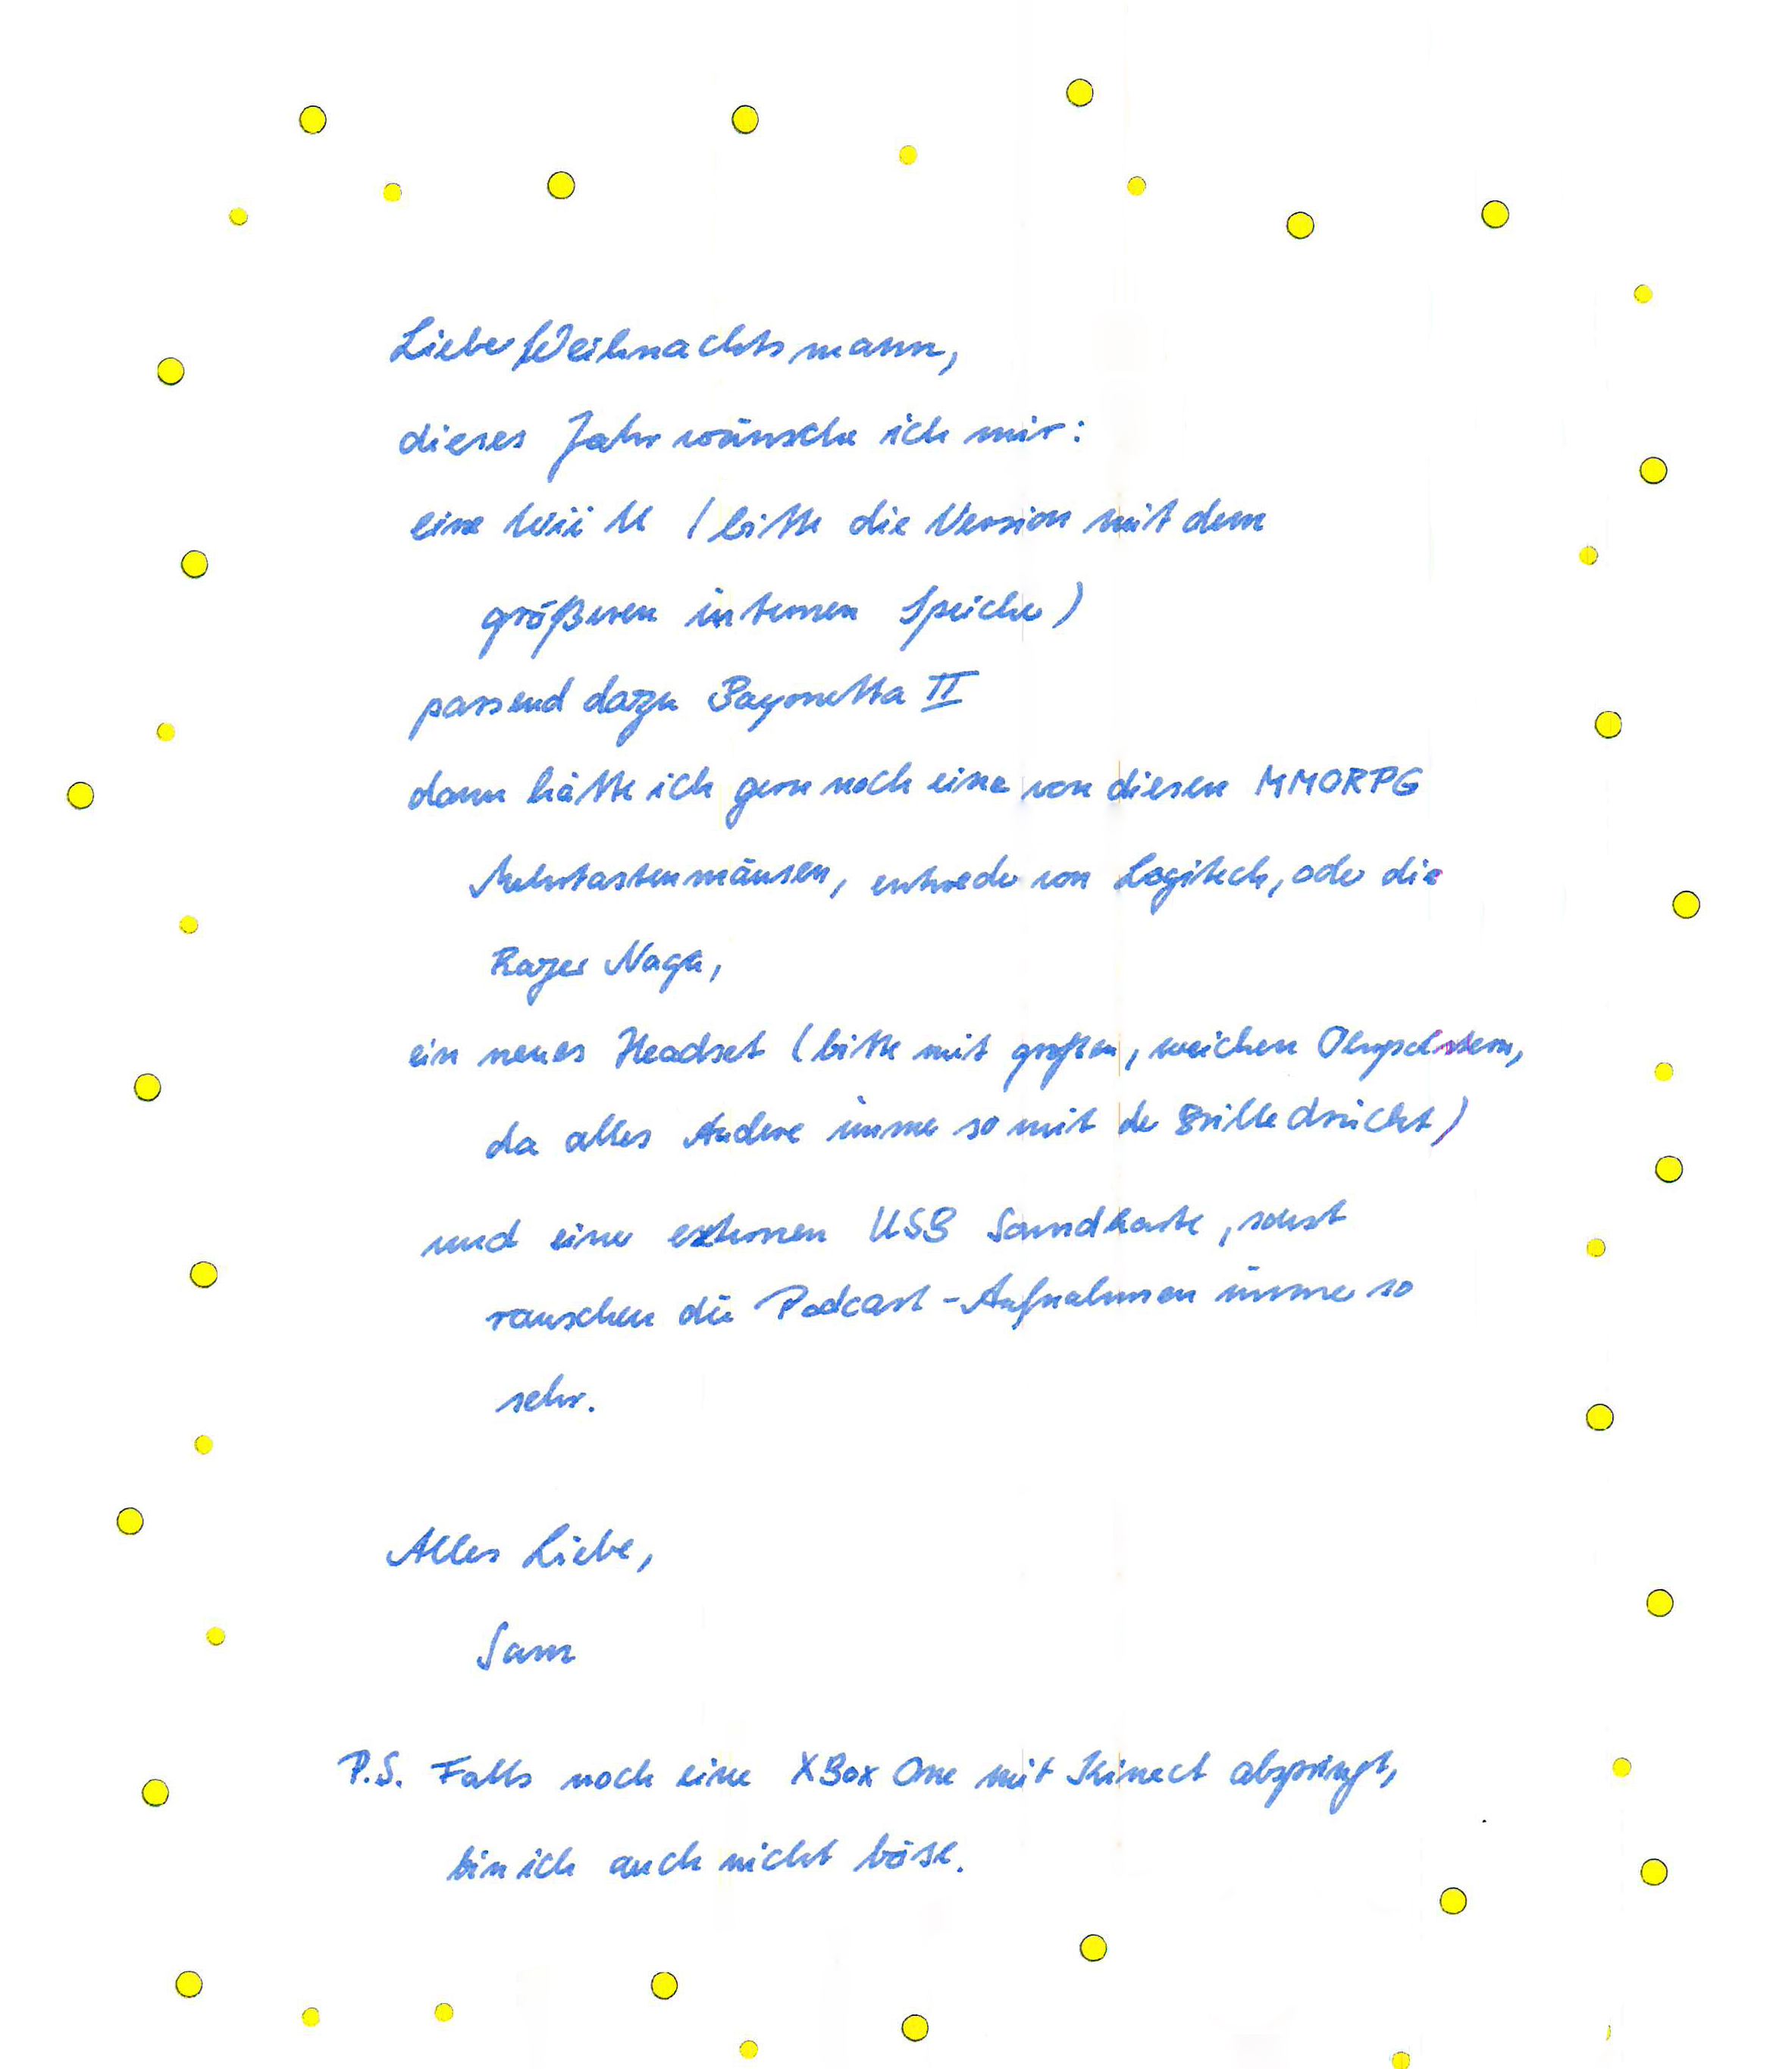 Lieber Weihnachtsmann,
dieses Jahr wünsche ich mir:
eine Wii U (bitte die Version mit dem
größeren internen Speicher)
passend dazu Bayonetta II
dann hätte ich gern noch eine von diesen MMORPG
Mehrtastenmäusen, entweder von Logitech, oder die
Razer Naga,
ein neues Headset (bitte mit großen, weichen Ohrpolstern,
da alles Andere immer so mit der Brille drückt)
und einer externen USB Soundkarte, sonst
rauschen die Podcast-Aufnahmen immer so
sehr.
Alles Liebe,
Sam
P.S. Falls noch eine XBox One mit Kinect abspringt,
bin ich auch nicht böse.